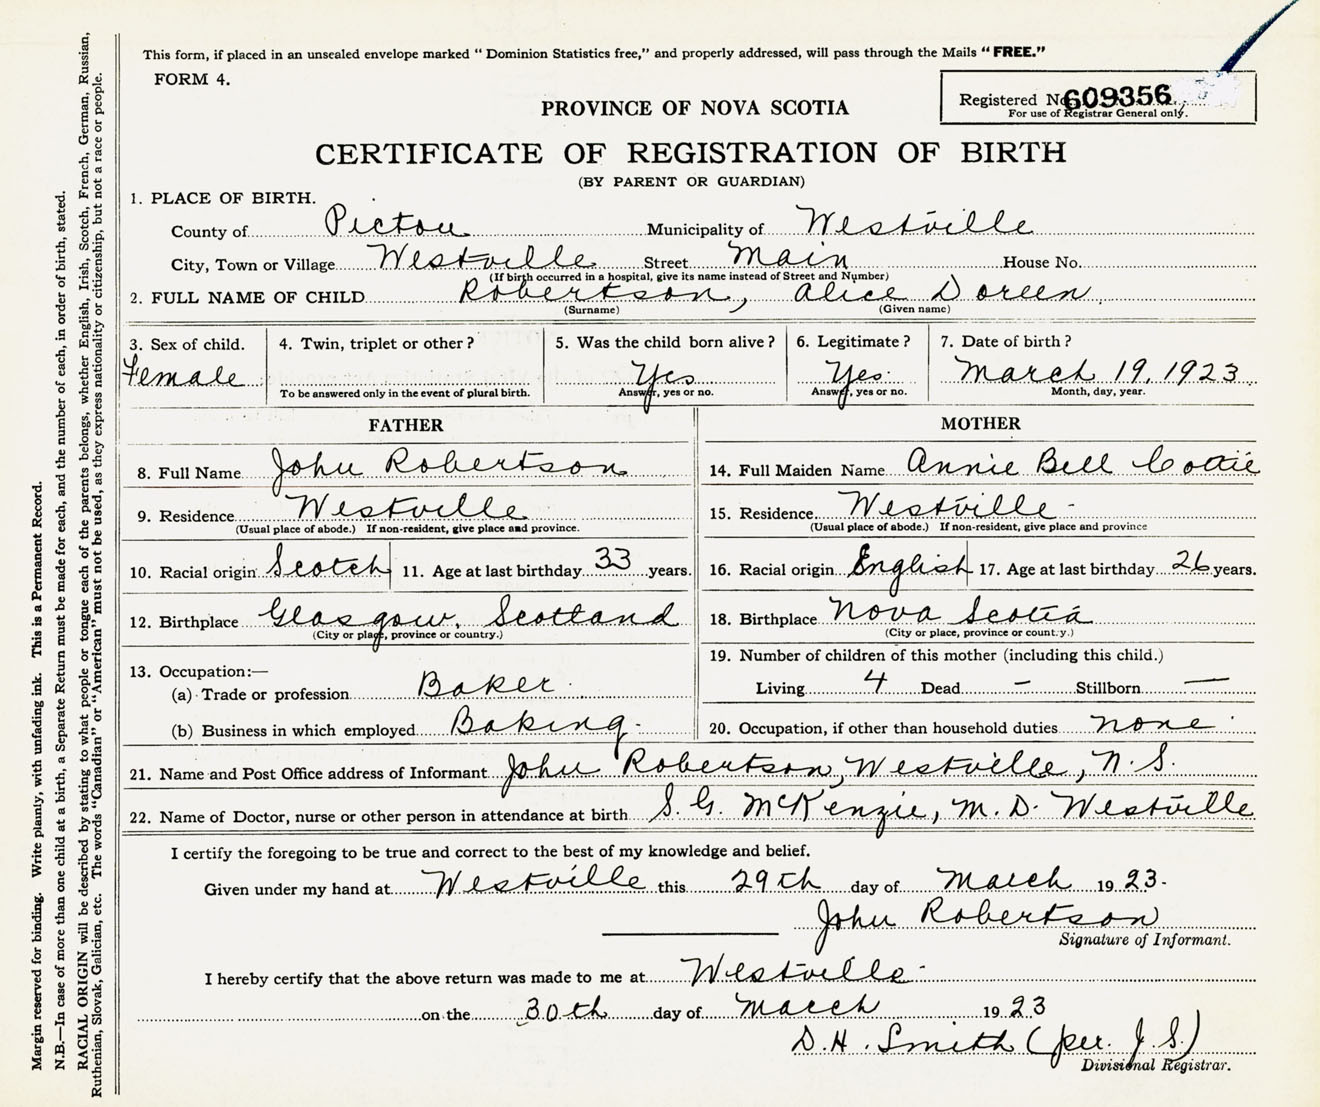 This form, if placed in an unsealed envelope marked "Dominion Statistics free," and properly addressed, will pass through the Mails "FREE."
FORM 4.
Registered No. 609356
For use of Registrar General only.
PROVINCE OF NOVA SCOTIA
CERTIFICATE OF REGISTRATION OF BIRTH
(BY PARENT OR GUARDIAN)
1. PLACE OF BIRTH.
County of Pictou Municipality of Westville
City, Town or Village Westville Street Main House No.
(If birth occurred in a hospital, give its name instead of Street and Number)
2. FULL NAME OF CHILD Robertson, Alice Doreen
(Surname) (Given name)
3. Sex of child. 4. Twin, triplet or other? 5. Was the child born alive? 6. Legitimate? 7. Date of birth?
Female Yes Yes March 19, 1923
To be answered only in the event of plural birth. Answer, yes or no. Answer, yes or no. Month, day, year.
FATHER
8. Full Name John Robertson
9. Residence Westville
(Usual place of abode.) If non-resident, give place and province.
10. Racial origin Scotch 11. Age at last birthday 33 years.
12. Birthplace Glasgow, Scotland
(City or place, province or country.)
13. Occupation:—
(a) Trade or profession Baker
(b) Business in which employed Baking
MOTHER
14. Full Maiden Name Annie Bell Cottie
15. Residence Westville
(Usual place of abode.) If non-resident, give place and province
16. Racial origin English 17. Age at last birthday 26 years.
18. Birthplace Nova Scotia
(City or place, province or country.)
19. Number of children of this mother (including this child.)
Living 4 Dead – Stillborn —
20. Occupation, if other than household duties none
21. Name and Post Office address of Informant John Robertson, Westville, N.S.
22. Name of Doctor, nurse or other person in attendance at birth S. G. McKenzie, M.D. Westville
I certify the foregoing to be true and correct to the best of my knowledge and belief.
Given under my hand at Westville this 29th day of March 1923.
John Robertson
Signature of Informant.
I hereby certify that the above return was made to me at Westville
on the 30th day of March 1923
D. H. Smith (per. J. S.)
Divisional Registrar.
Margin reserved for binding. Write plainly, with unfading ink. This is a Permanent Record.
N.B.—In case of more than one child at a birth, a Separate Return must be made for each, and the number of each, in order of birth, stated.
RACIAL ORIGIN will be described by stating to what people or tongue each of the parents belongs, whether English, Irish, Scotch, French, German, Russian,
Ruthenian, Slovak, Galician, etc. The words "Canadian" or "American" must not be used, as they express nationality or citizenship, but not a race or people.